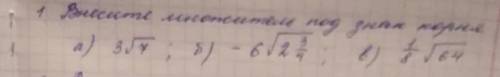 1. Внесите множитель под знак корня
а) 3√7 ; б) -6√2 3/4 ; в) 1/8 √64